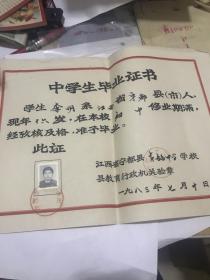 中学生毕业证书
学生 李明亲 江西省宁都县(市)人,
现年 15 岁,在本校 初中 修业期满,
经考核及格,准予毕业。
此证
江西省宁都县 中学校
县教育行政机关验章
一九八三年七月十日